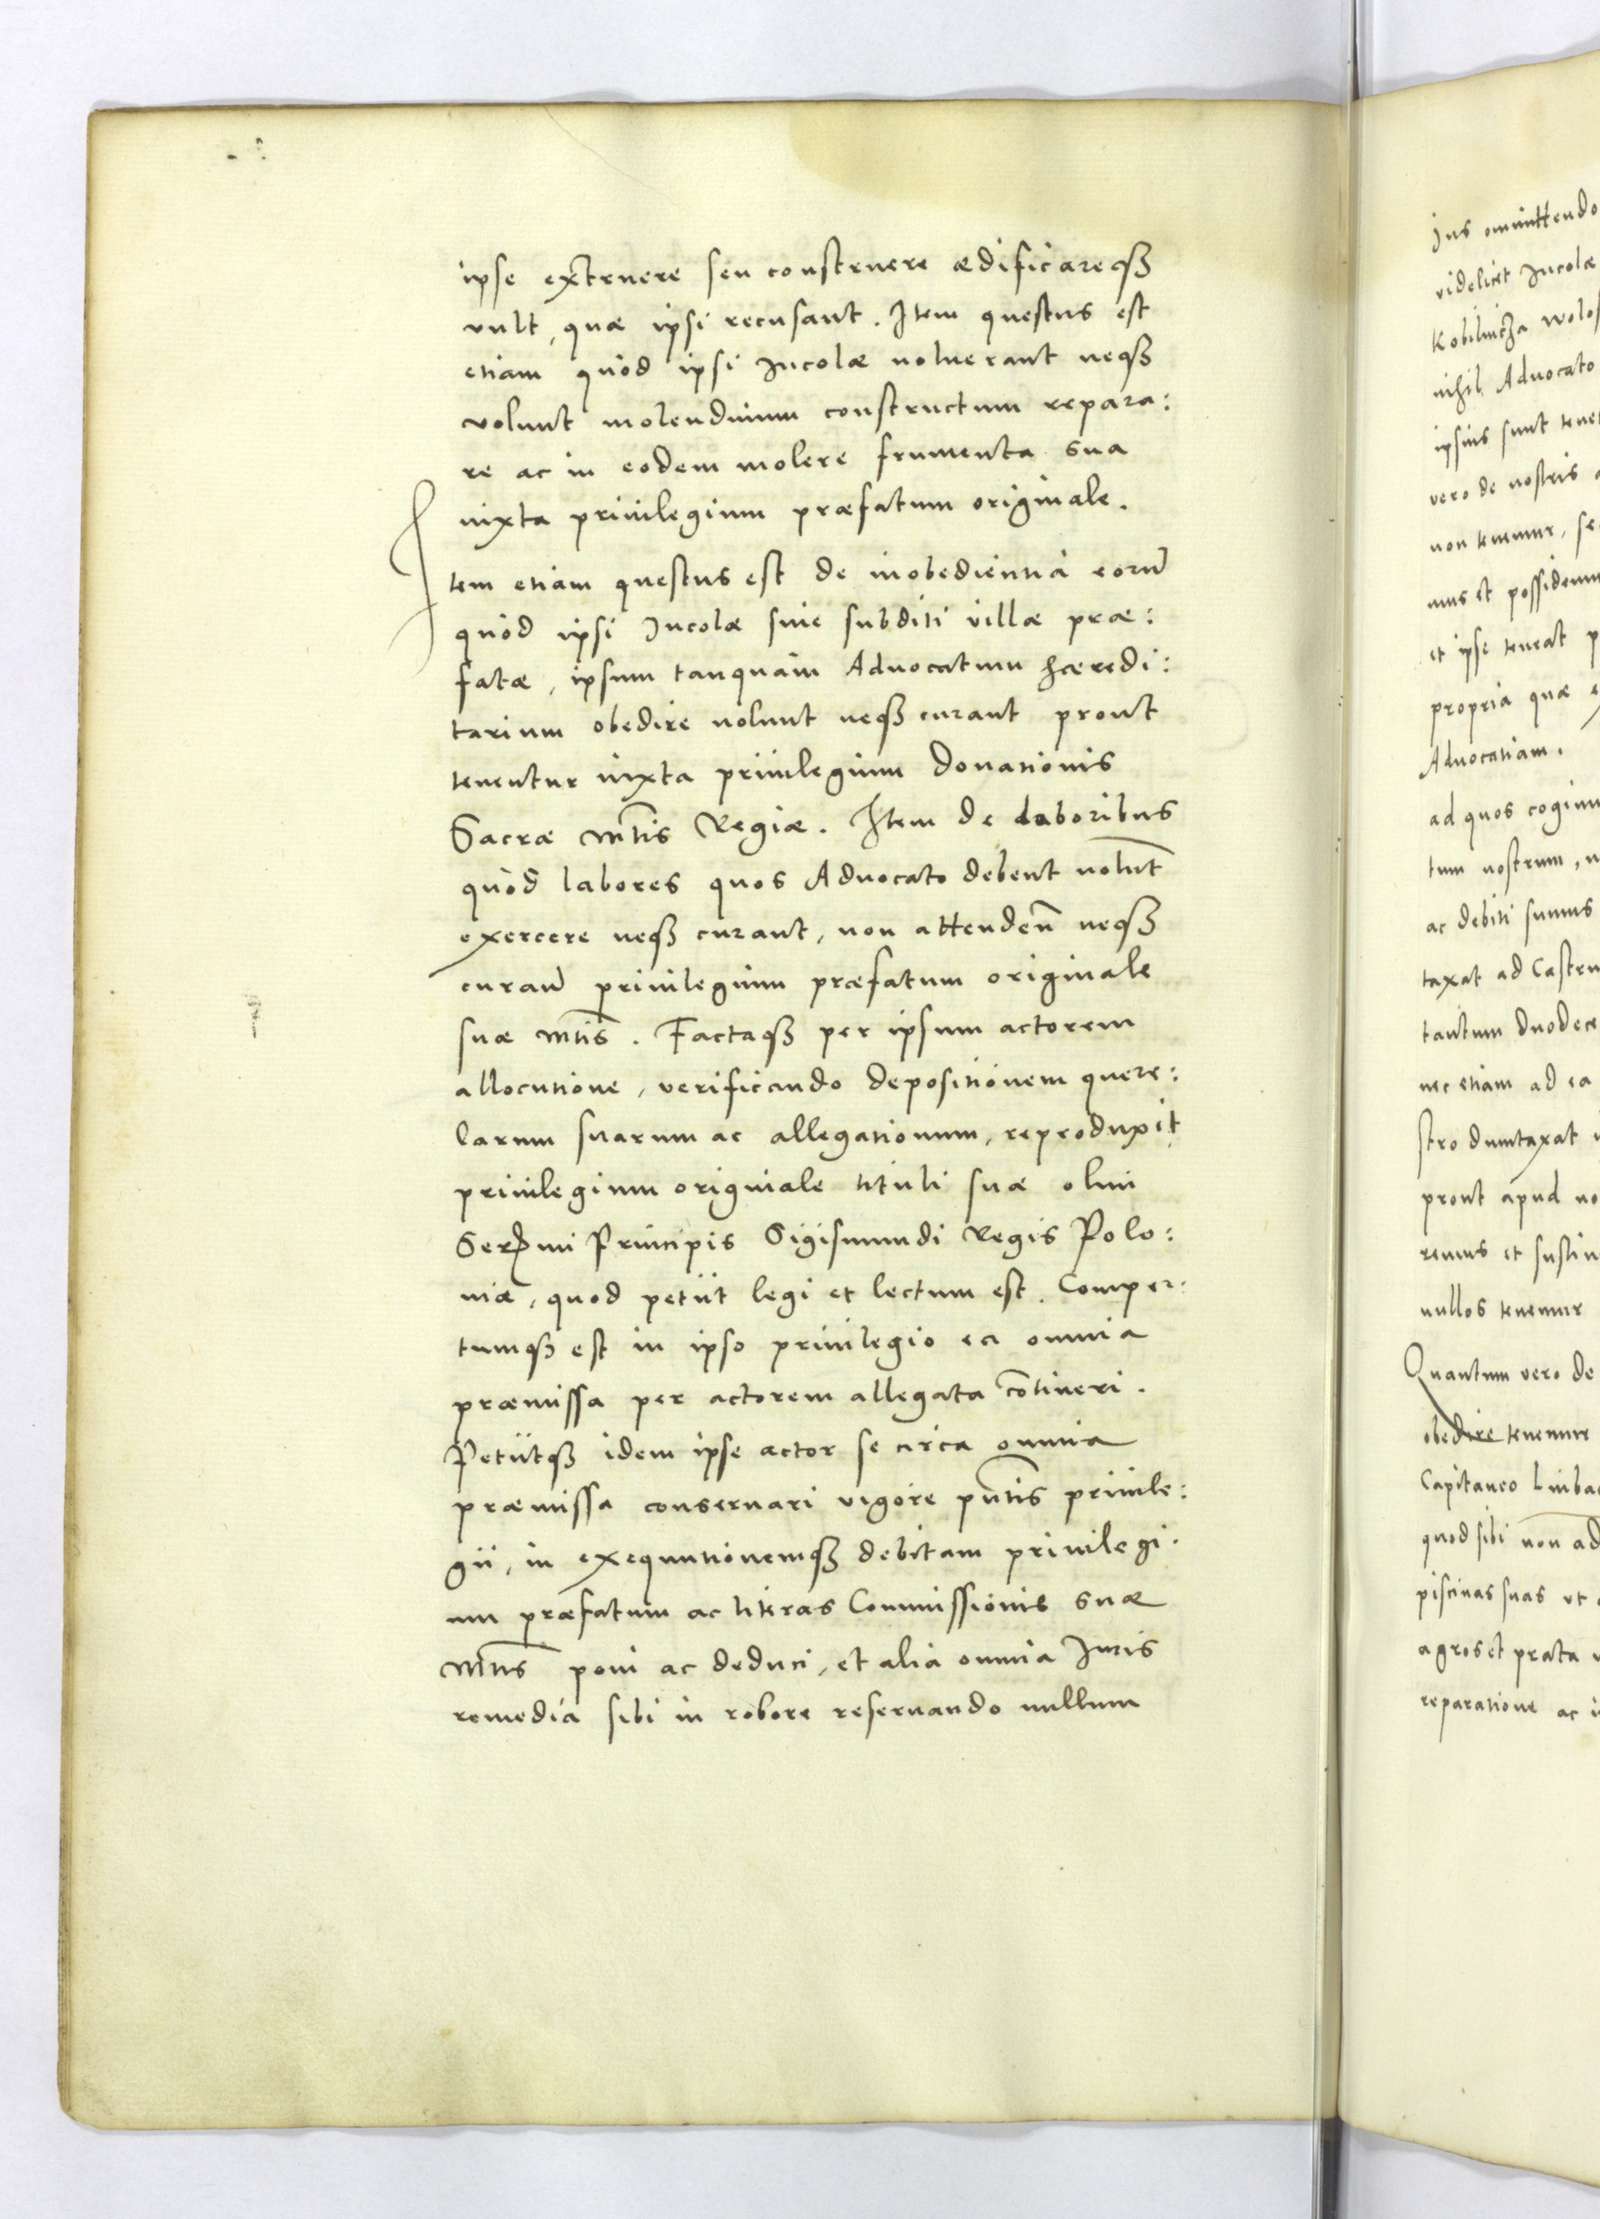 ipse extruere seu construere ædificareq₃
vult, quæ ipsi recusant. Item questus est
etiam quòd ipsi Incolæ noluerant neq₃
volunt molendinum constructum repara:
re ac in eodem molere frumenta sua
iuxta priuilegium præfatum originale.
Item etiam questus est de inobedientia eorū
quòd ipsi Incolæ siue subditi villæ præ:
fatæ, ipsum tanquam Aduocatum hæredi:
tarium obedire nolunt neq₃ curant prout
tenentur iuxta priuilegium donationis
Sacræ Mt̄is Regiæ. Item de laboribus
quòd labores quos Aduocato debent nolūt
exercere neq₃ curant, non attendeñ neq₃
curañ priuilegium præfatum originale
suæ Mt̄is. Factaq₃ per ipsum actorem
allocutione, verificando depositionem quere:
larum suarum ac allegationum, reproduxit
priuilegium originale tituli suæ olim
Ser̄mi Principis Sigismundi Regis Polo:
niæ, quod petiit legi et lectum est. Comper:
tumq₃ est in ipso priuilegio ea omnia
præmissa per actorem allegata cōtineri.
Petiitq₃ idem ipse actor se circa omnia
præmissa conseruari vigore pn̄tis priuile:
gii, in exequutionemq₃ debitam priuilegi:
um præfatum ac literas Commissionis suæ
Mt̄is poni ac deduci, et alia omnia Iuris
remedia sibi in robore reseruando nullum
Ius omittendo
videlicet Incolæ
nihil Aduocato
ipsius sunt
vero de nostris
non tenemur,
mus et
et ipse teneat
propria quæ
Aduocatiam.
ad quos
tum nostrum,
ac debiti sumus
taxat ad
tantum
nec etiam ad ea
stro dumtaxat
prout apud
remus et
nullos tenemur
Quantum vero de
obedire tenemur
Capitaneo
quod sibi non
piscinas suas vt
agros et prata
reparatione ac